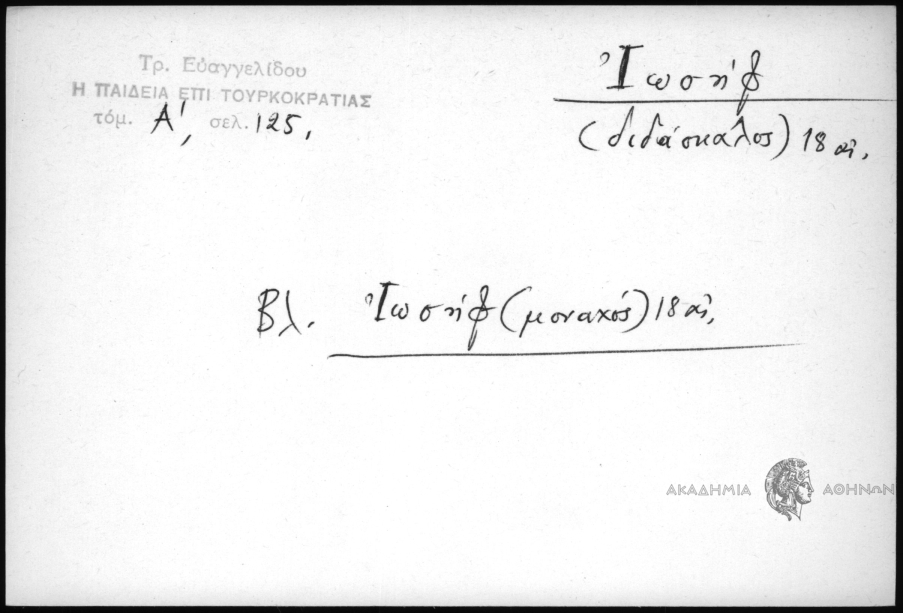 Τρ. Εὐαγγελίδου
Η ΠΑΙΔΕΙΑ ΕΠΙ ΤΟΥΡΚΟΚΡΑΤΙΑΣ
τόμ. Α', σελ. 125.
Ἰωσήφ
(διδάσκαλος) 18 αἰ.
Βλ. Ἰωσήφ (μοναχός) 18 αἰ.
ΑΚΑΔΗΜΙΑ ΑΘΗΝΩΝ